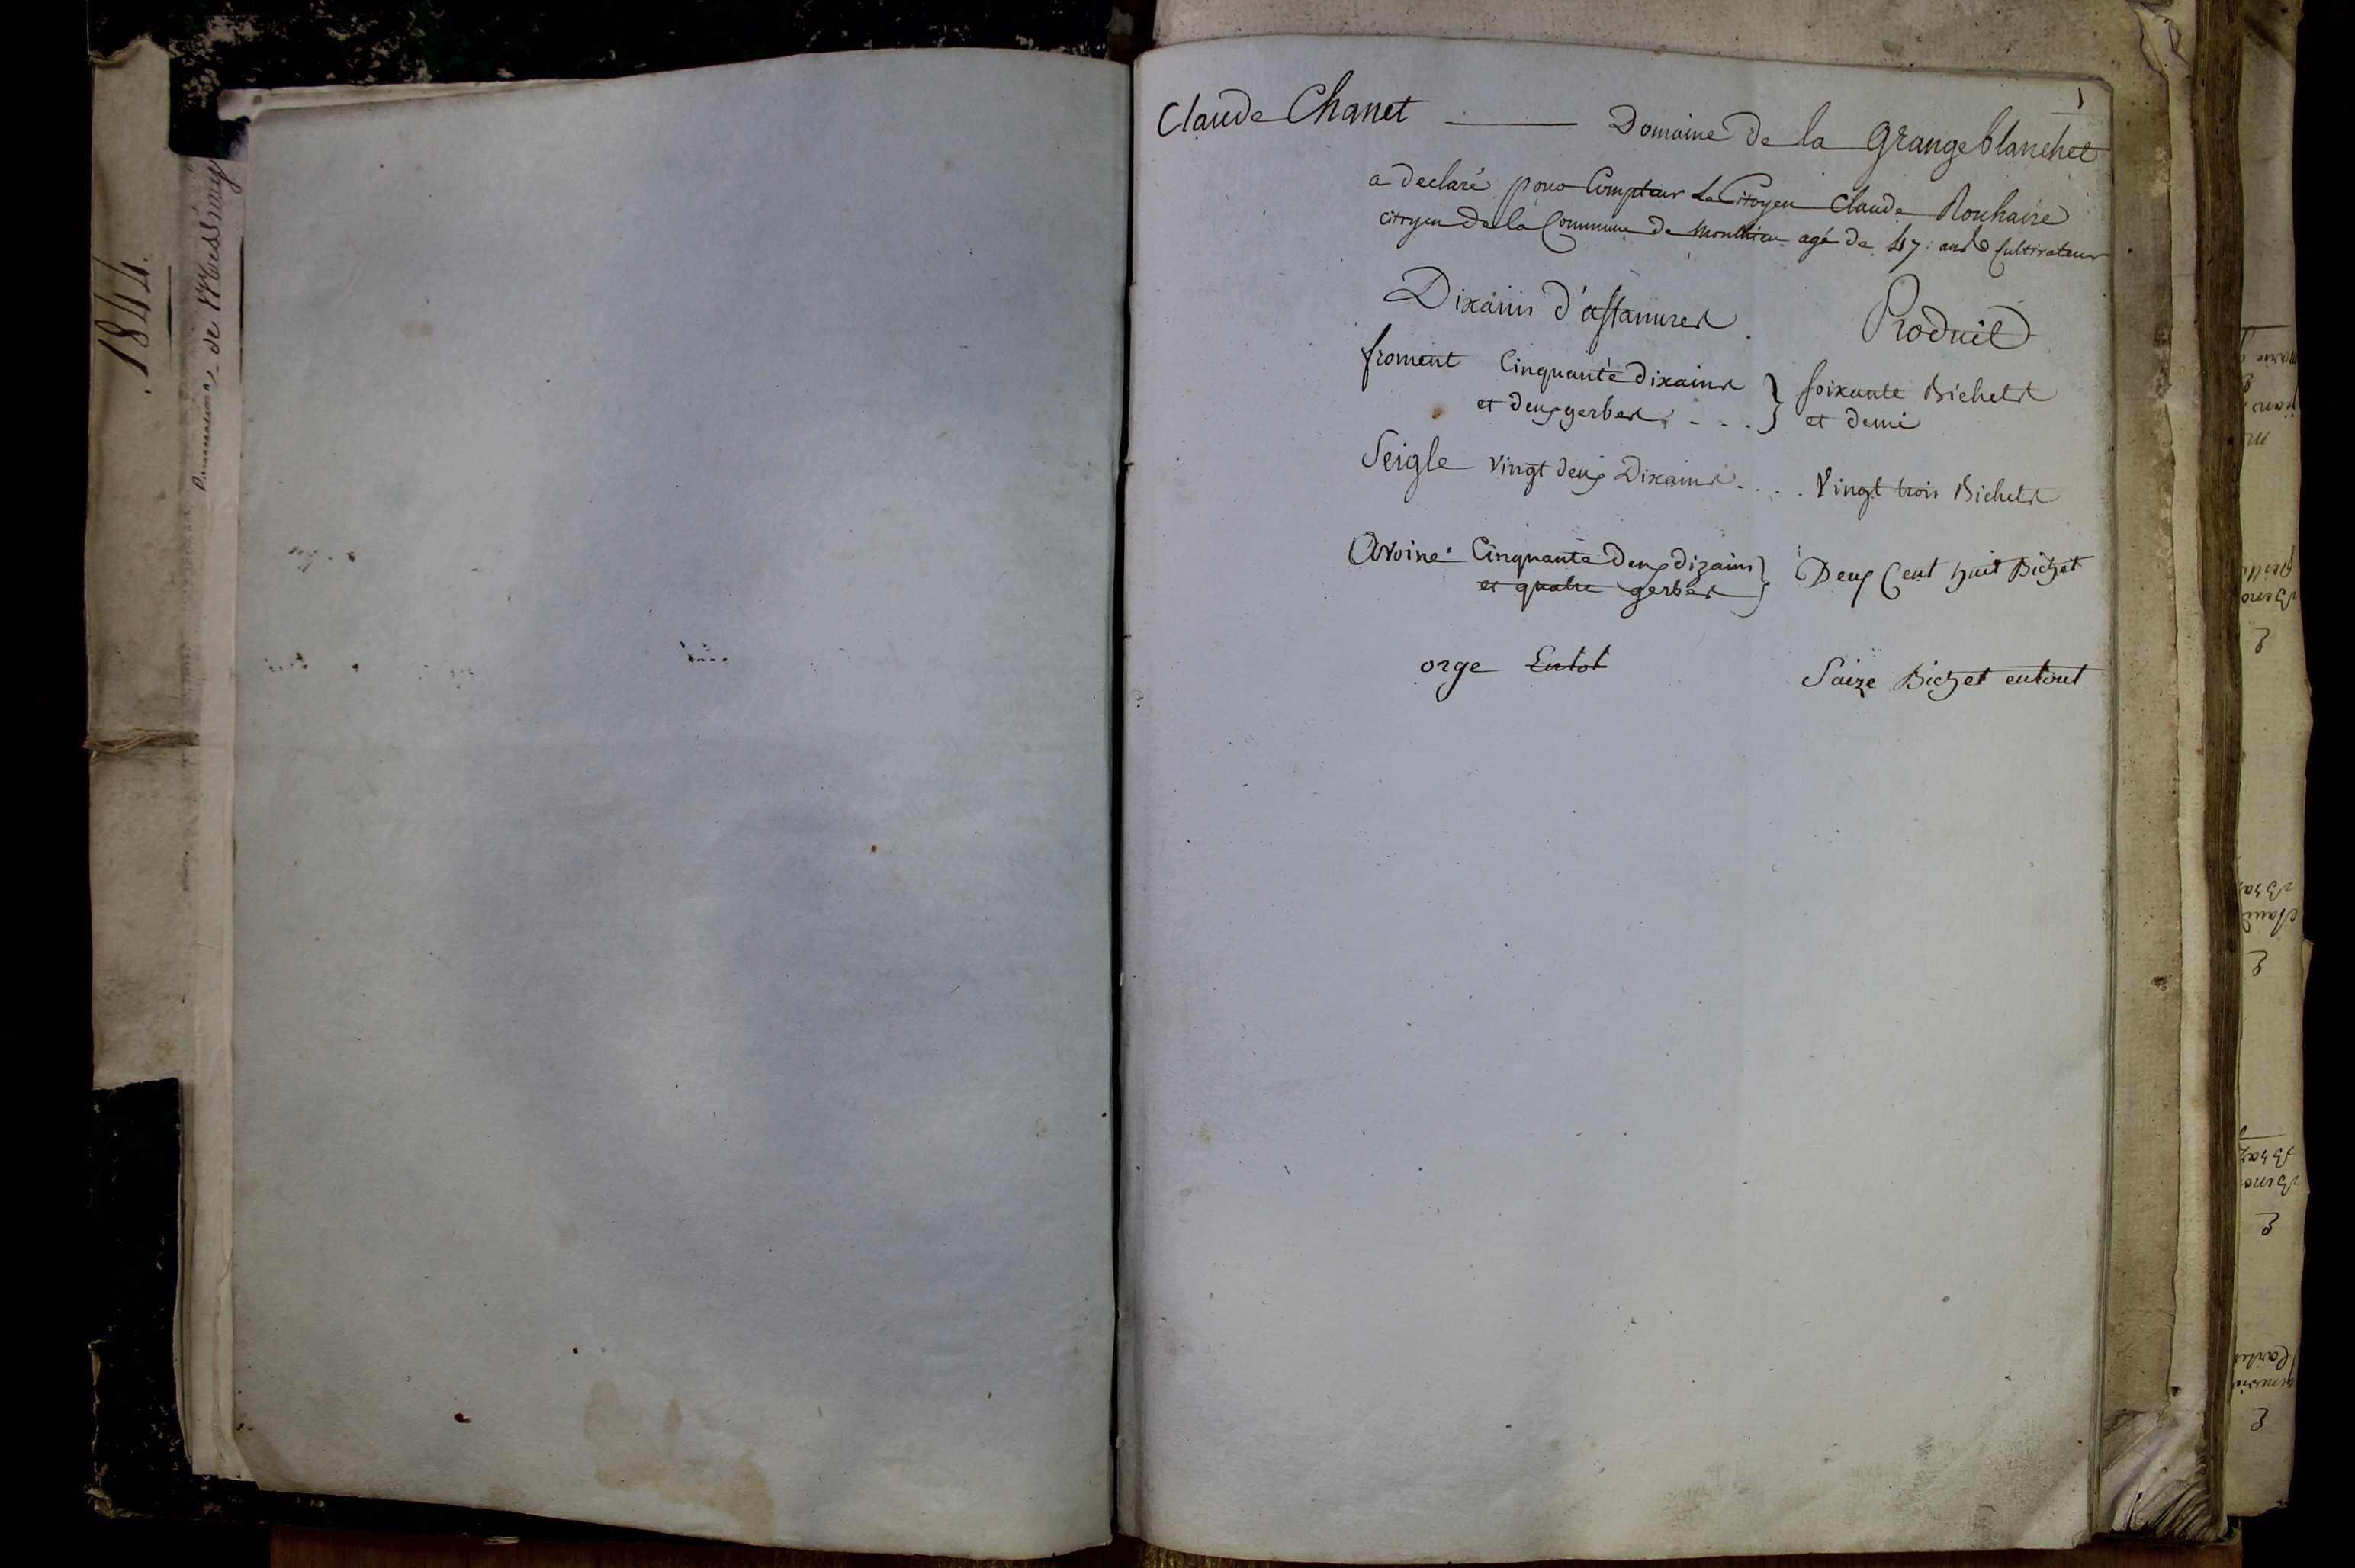 1844.
de Messimy
1
Claude Chanet — Domaine de la grangeblanchet
a declaré pour Compteur Le Citoyen Claude Rouhaire
citoyen de la Commune de Monthieu agé de 47: ans Cultivateur
Dixains d'astamures Produit
froment Cinquante dixains } soixante Bichets
et deux gerbes . . . } et demi
Seigle vingt deux Dixains . . . . Vingt trois Bichets
Avoine Cinquante deux dizains } Deux Cent huit Bichet
et quatre gerbes }
orge Entot Saize Bichet entout